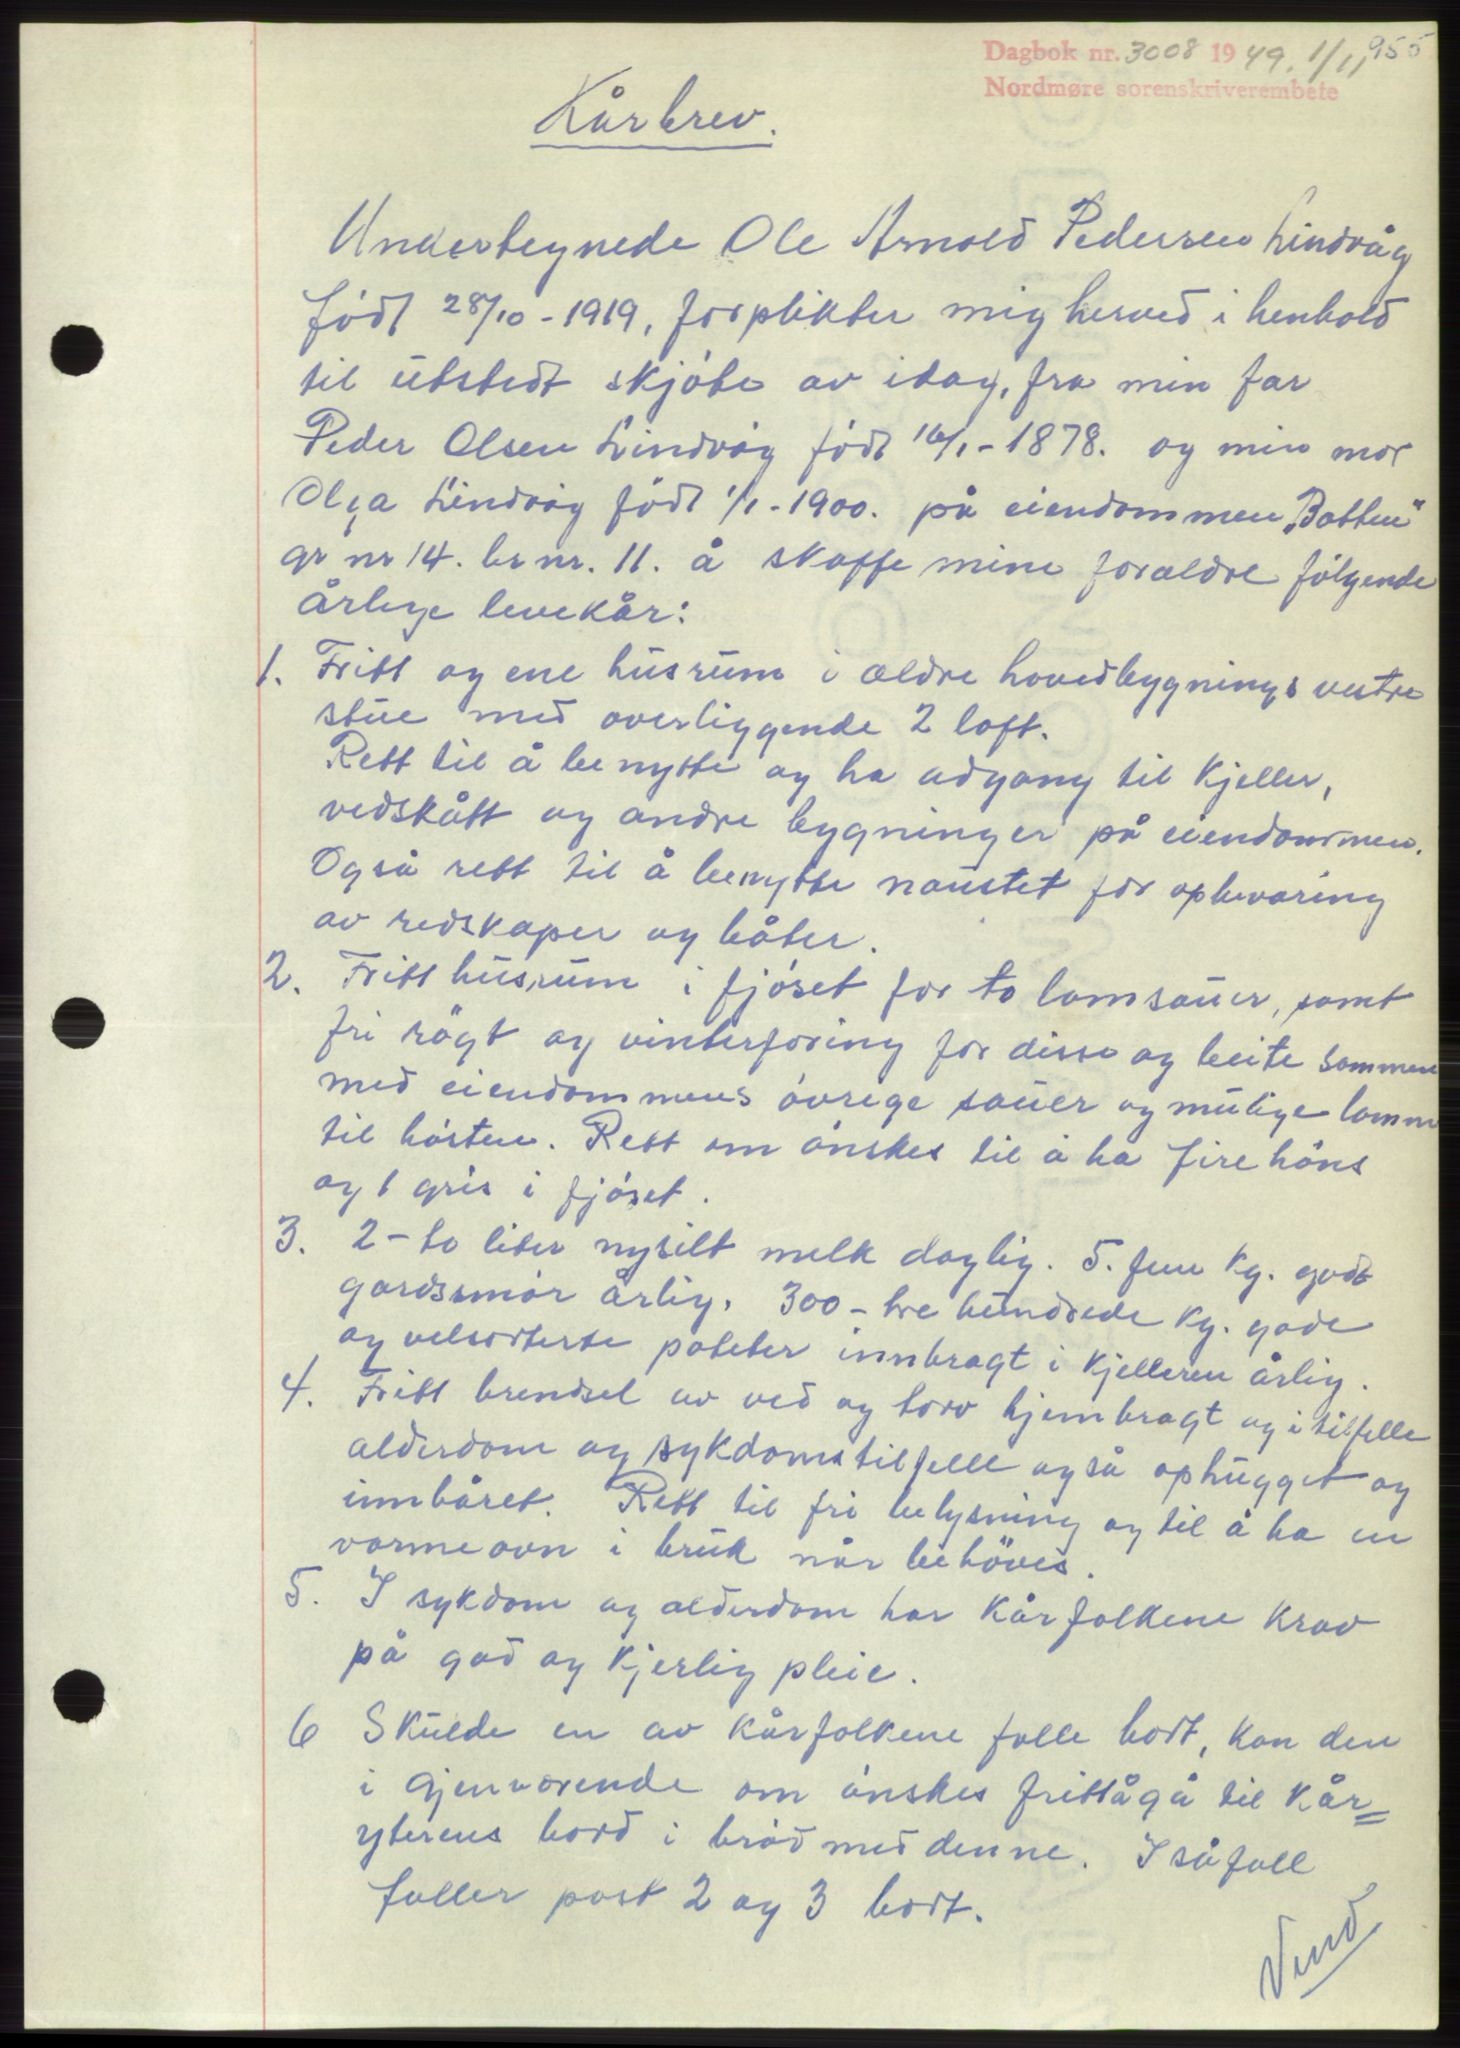 Dagbok nr. 3008 1949. 1/11 955
Nordmøre sorenskriverembete
Kårbrev.
Undertegnede Ole Arnold Pedersen Lindvåg
født 28/10 - 1919, forplikter mig herved i henhold
til utstedt skjøte av idag, fra min far
Peder Olsen Lindvåg født 16/1 - 1878. og min mor
Olga Lindvåg født 1/1 - 1900. på eiendommen „Botten"
gr nr 14. br nr. 11. å skaffe mine forældre følgende
årlige levekår:
1. Fritt og ene husrum i ældre hovedbygnings vestre
stue med overliggende 2 loft.
Rett til å benytte og ha adgang til kjeller,
vedskått og andre bygninger på eiendommen.
Også rett til å benytte naustet for opbevaring
av redskaper og båter.
2. Fritt husrum i fjøset for to lamsauer, samt
fri røgt og vinterforing for disse og beite sammen
med eiendommens øvrige sauer og mulige lamm
til høsten. Rett om ønskes til å ha fire høns
og 1 gris i fjøset.
3. 2 - to liter nysilt melk daglig. 5. fem kg. godt
gardssmør årlig. 300 - tre hundrede kg. gode
og velsorterte poteter innbragt i kjelleren årlig.
4. Fritt brendsel av ved og torv hjembragt og i tilfelle
alderdom og sykdomstilfelle også ophugget og
innbåret. Rett til fri belysning og til å ha en
varmeovn i bruk når behøves.
5. I sykdom og alderdom har kårfolkene krav
på god og kjerlig pleie.
6 Skulde en av kårfolkene falle bort, kan den
i gjenværende om ønskes fritt å gå til kår=
yterens bord i brød med denne. I så fall
faller post 2 og 3 bort.
Vend